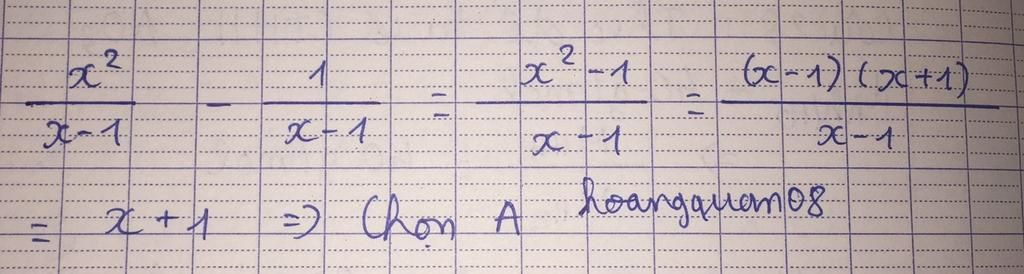 x²/(x-1) - 1/(x-1) = (x²-1)/(x-1) = (x-1)(x+1)/(x-1)
= x+1 => Chọn A hoangquan08